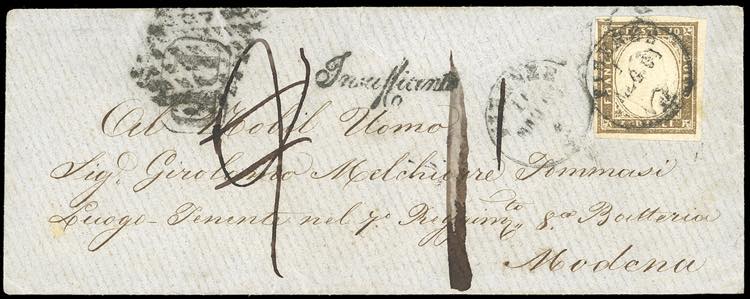 Insufficiente
FIRENZE
FIRENZE
FRANCO
Al Nobil Uomo
Sig.r Girolamo Melchiorre Tommasi
Luogo-Tenente nel 7o Regim.to 8.a Batteria
Modena